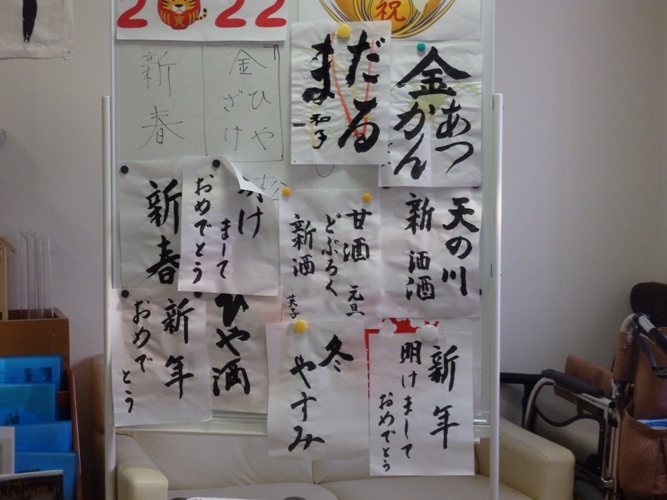 2022
祝
新春
金
ひや
ざけ
だる
ま
和子
あつ
金かん
新春
明け
まして
おめでとう
甘酒 元旦
どぶろく
新酒 英子
天の川
新酒酒
新年
おめでとう
ひや酒
冬
やすみ
新年
明けまして
おめでとう